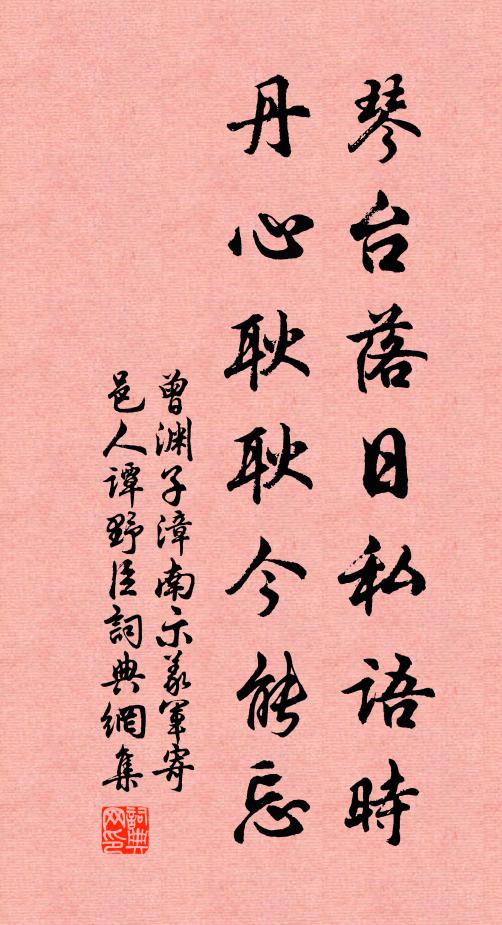 琴台落日私语時
丹心耿耿今能忘
曾渊子漳南示義軍寄
邑人谭野臣詞典網集
詞典网印